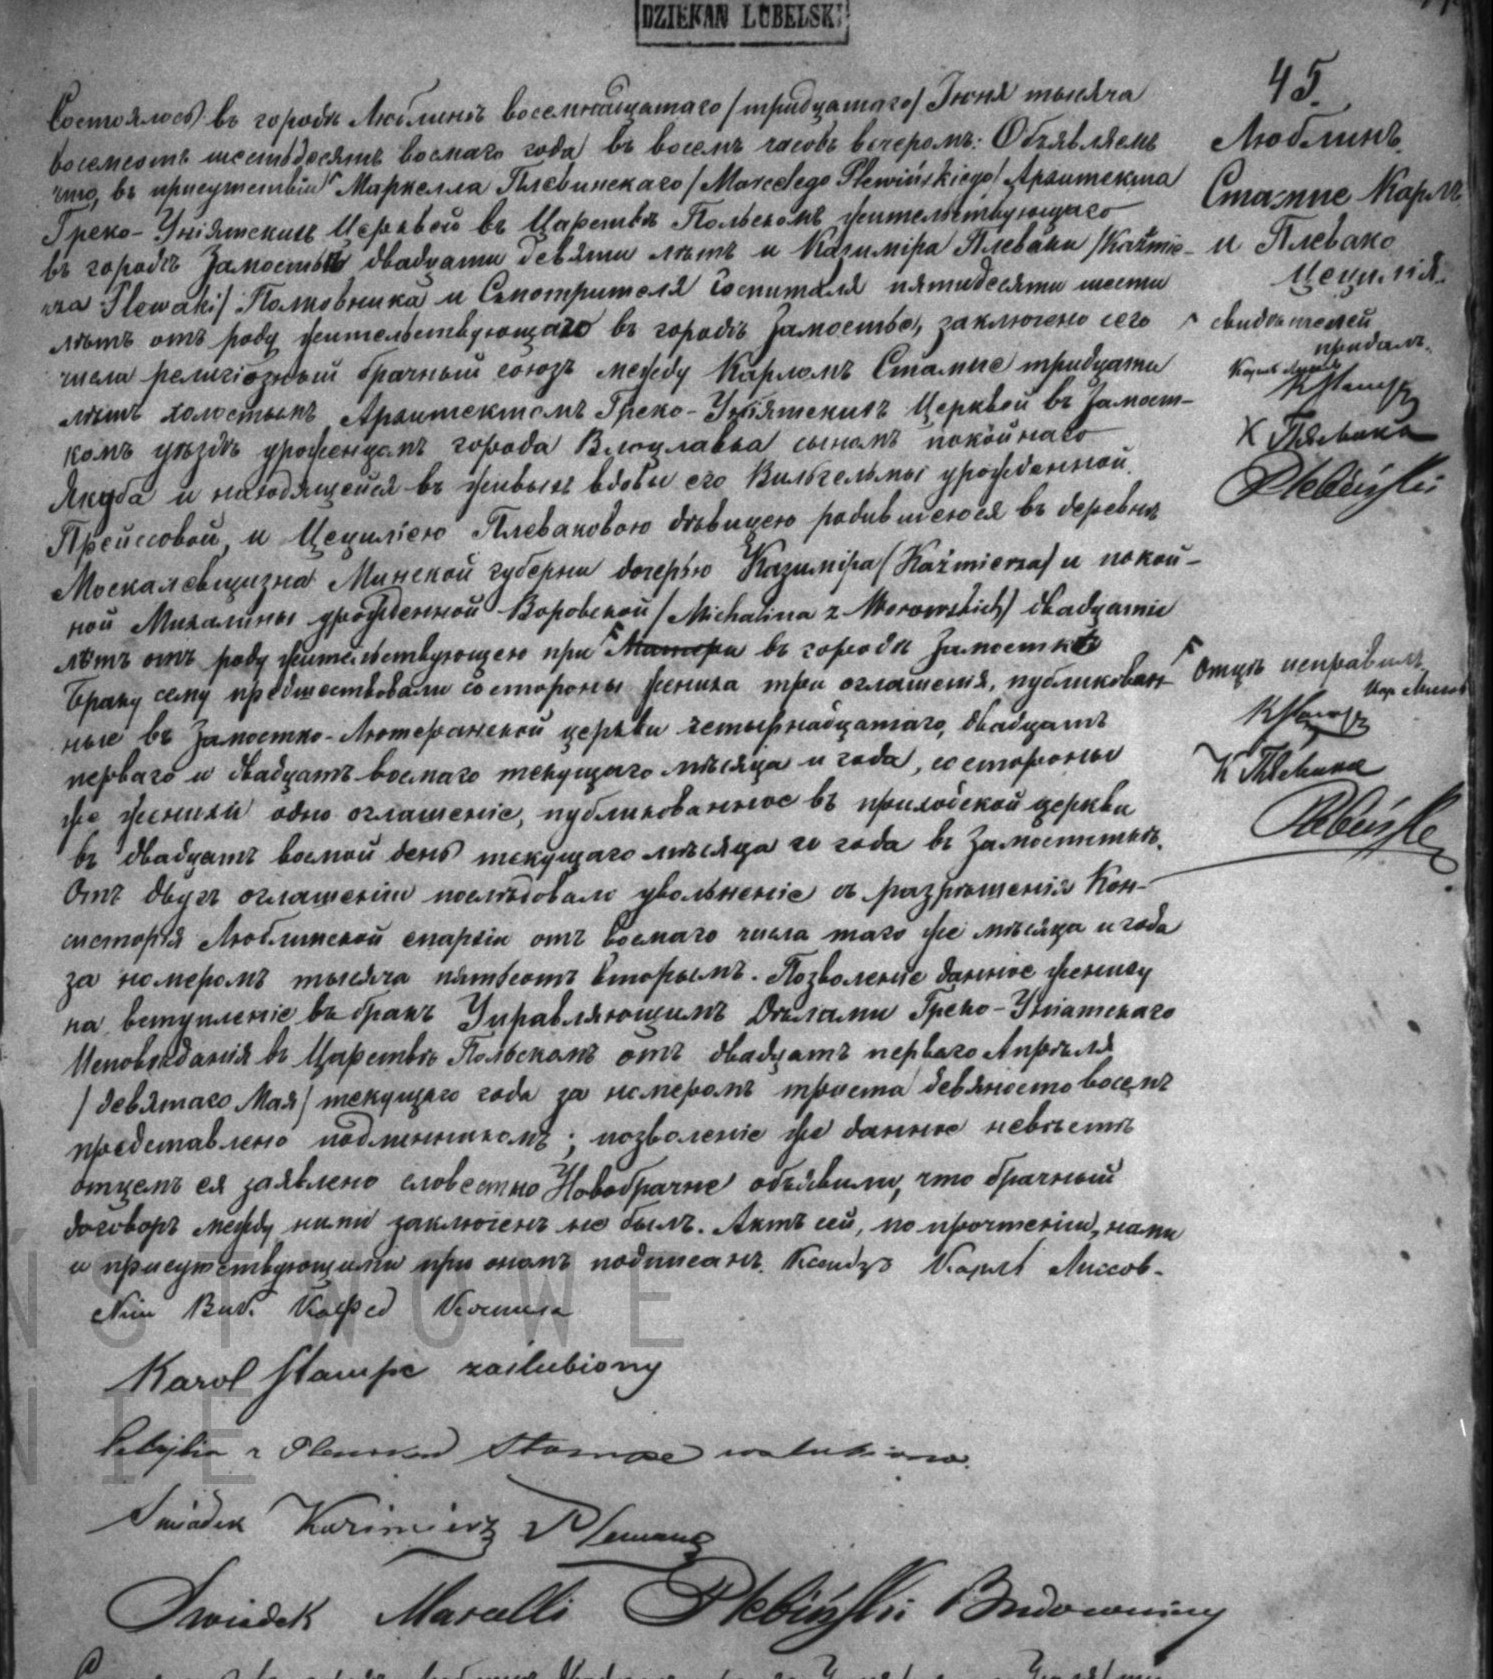 DZIEKAN LUBELSKI
45.
Люблинъ.
Стампе Карлъ
и Плевако
Цецилія.
Состоялось въ городѣ Люблинѣ восемнадцатаго /тридцатаго/ Іюня тысяча
восемсотъ шестьдесятъ восмаго года въ восемь часовъ вечеромъ: Объявляемъ
что, въ присутствіи Маркелла Плевинскаго /Marcelego Plewińskiego/ Архитекта
Греко-Уніятскихъ Церквей въ Царствѣ Польскомъ жительствующаго
въ городѣ Замостьѣ двадцати девяти лѣтъ и Казиміра Плеваки /Kaźmie-
rza Plewaki/ Полковника и Смотрителя Госпиталя пятидесяти шести
лѣтъ отъ роду жительствующаго въ городѣ Замостьѣ, заключено сего
числа религіозный брачный союзъ между Карломъ Стампе тридцати
лѣтъ холостымъ Архитектомъ Греко-Уніятскихъ Церквей въ Замост-
комъ уѣздѣ урожденцомъ города Влоцлавка сыномъ покойнаго
Якуба и находящейся въ живыхъ вдовы его Вильгельмы урожденной
Прейссовой, и Цециліею Плеваковою дѣвицею родившеюся въ деревнѣ
Москалевщизна Минской губерни дочерью Казиміра /Kaźmierza/ и покой-
ной Михалины урожденной Воровской /Michalina z Worowskich/ двадцати
лѣтъ отъ роду жительствующею при Матери въ городѣ Замостьѣ
Браку сему предшествовали со стороны жениха три оглашенія, публикован-
ные въ Замостко-Лютеранской церкви четырнадцатаго, двадцать
перваго и двадцать восмаго текущаго мѣсяца и года, со стороны
же женихи одно оглашеніе, публикованное въ приходской церкви
въ двадцать восмой день текущаго мѣсяца го года въ Замостьѣ.
Отъ двухъ оглашеніи послѣдовало увольненіе съ разрѣшенія Кон-
систорія Люблинской епархіи отъ восмаго числа того же мѣсяца и года
за номеромъ тысяча пятьсотъ вторымъ. Позволеніе данное жениху
на вступленіе въ бракъ Управляющимъ Дѣлами Греко-Уніатскаго
Исповѣданія въ Царствѣ Польскомъ отъ двадцать перваго Апрѣля
/девятаго Мая/ текущаго года за номеромъ триста девяносто восемъ
представлено подлинникомъ; позволеніе же данное невѣстѣ
отцемъ ея заявлено словестно Новобрачные объявили, что брачный
договоръ между ними заключенъ не былъ. Актъ сей, по прочтеніи, нами
и присутствующими при ономъ подписанъ. Ксендзъ Карлъ Лиссов-
скій Вик. Кафед
свидѣтелей
придалъ.
К Stampe
К Плевака
Plebiński
Отцѣ исправилъ
K Stampe
К Плевака
Plebiński
Karol Stampe zaślubiony
Cecylia z Plewaków Stampe zaślubiona.
Świadek Kazimierz Plewako
Świadek Marcelli Plebiński Budowniczy